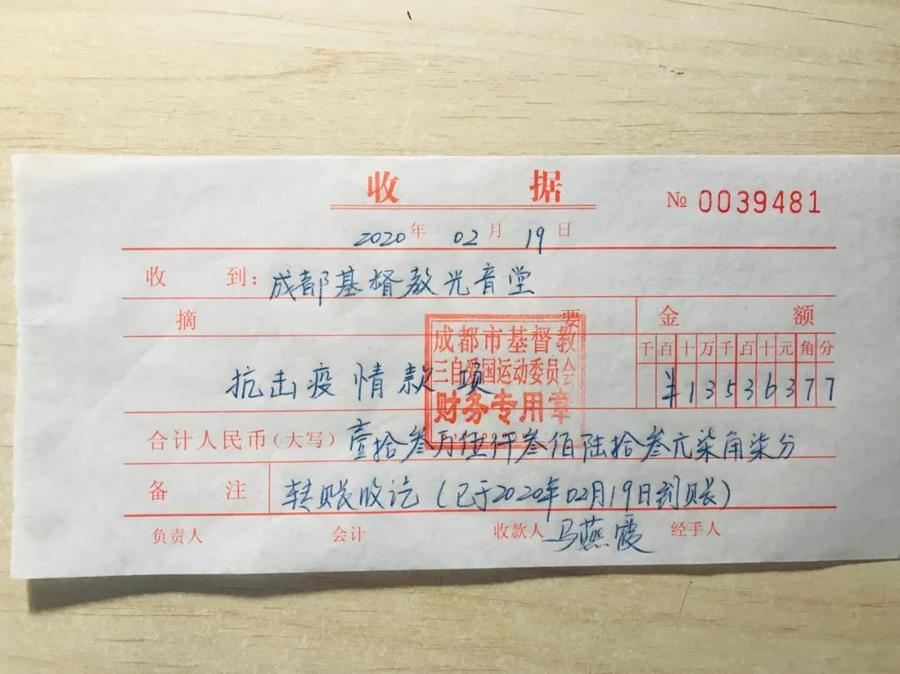 收 据
№ 0039481
2020年 02月 19日
收 到: 成都基督教光音堂
摘 要 金 额
千百十万千百十元角分
抗击疫情款项 ¥13536377
成都市基督教
三自爱国运动委员会
财务专用章
合计人民币(大写) 壹拾叁万伍仟叁佰陆拾叁元柒角柒分
备 注 转账收讫(已于2020年02月19日到账)
负责人 会计 收款人 马燕霞 经手人